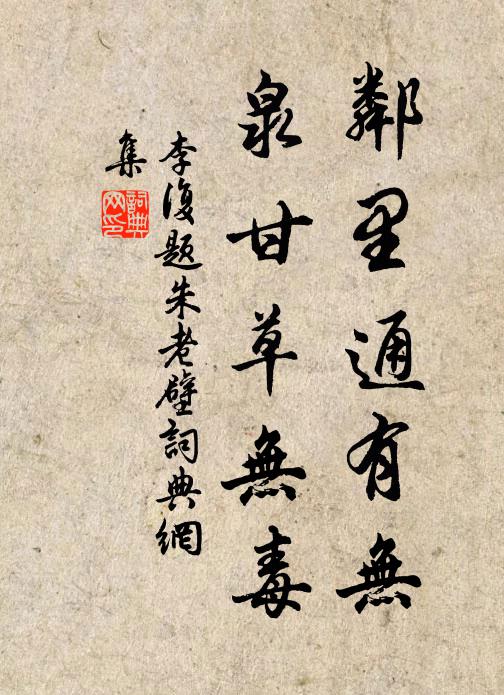 鄰里通有無
泉甘草無毒
李復題朱老壁詞典網
集
詞典網印